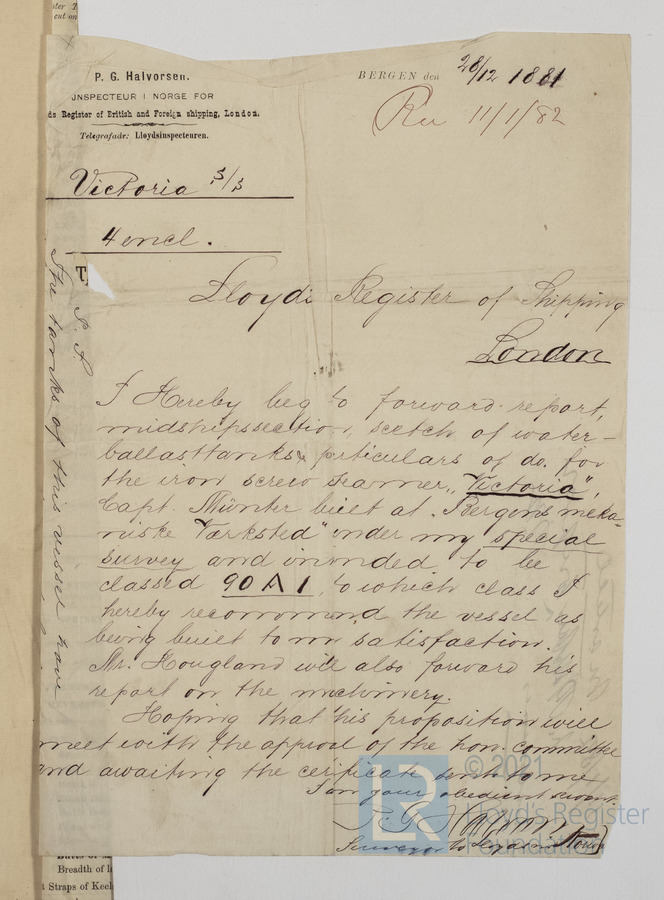 P. G. Halvorsen.
INSPECTEUR I NORGE FOR
ds Register of British and Foreign shipping, London.
Telegrafadr: Lloydsinspecteuren.
BERGEN den 28/12 1881
Rec 11/1/82
Victoria S/S
4 encl.
Lloyds Register of Shipping
London
I Hereby beg to forward report,
midshipssection, scetch of water-
ballasttanks & priticulars of do. for
the iron screw steamer „Victoria",
Capt. Münter built at „Bergens meka-
niske Værksted" under my special
survey and intended to be
classed 90 A 1, to which class I
hereby recommend the vessel as
being built to my satisfaction.
Mr. Hougland will also forward his
report on the machinery.
Hoping that this proposition will
meet with the approal of the hon. committee
and awaiting the cerificate sent to me
I am your obedient servant
P. G. Halvorsen
Surveyor to Lloyds in Norway
P. S.
The tanks of this vessel have
© 2021
LR
Lloyd's Register
Foundation
Breadth of
Straps of Keel